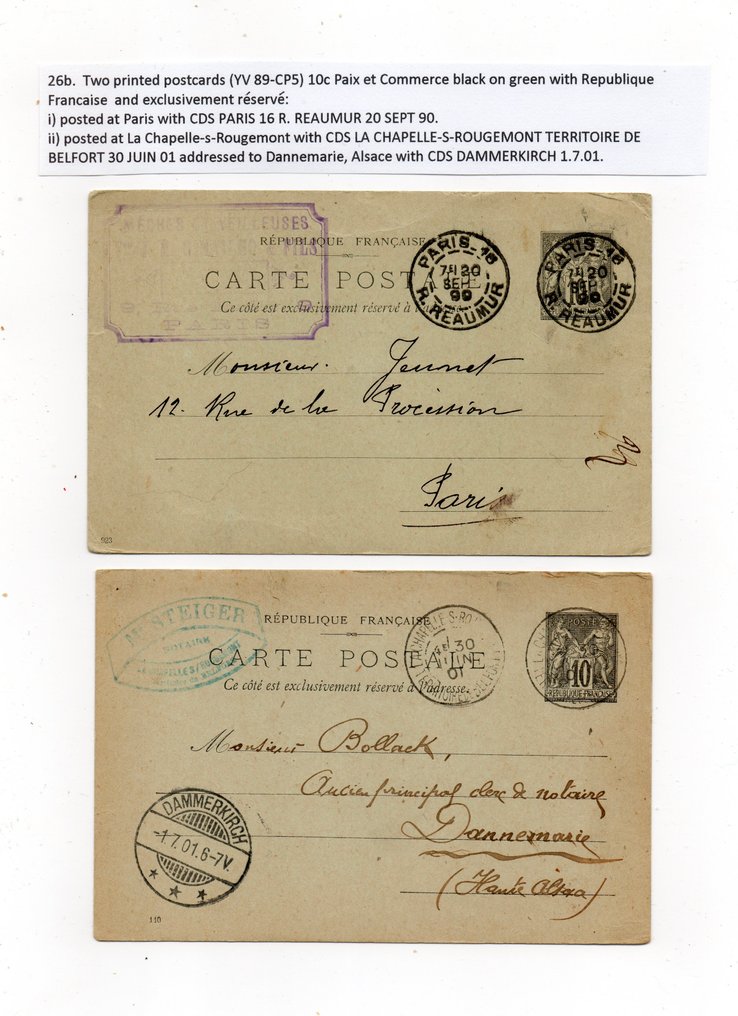 26b. Two printed postcards (YV 89-CP5) 10c Paix et Commerce black on green with Republique
Francaise and exclusivement réservé:
i) posted at Paris with CDS PARIS 16 R. REAUMUR 20 SEPT 90.
ii) posted at La Chapelle-s-Rougemont with CDS LA CHAPELLE-S-ROUGEMONT TERRITOIRE DE
BELFORT 30 JUIN 01 addressed to Dannemarie, Alsace with CDS DAMMERKIRCH 1.7.01.
FILS
PARIS
RÉPUBLIQUE FRANÇAISE
CARTE POSTALE
Ce côté est exclusivement réservé à
PARIS-16
20
SEPT
99
R. REAUMUR
PARIS-16
20
SEPT
99
R. REAUMUR
Monsieur. Jeunet
12. Rue de la Procession
Paris
923
STEIGER
NOTAIRE
RÉPUBLIQUE FRANÇAISE
CARTE POSTALE
Ce côté est exclusivement réservé à l'adresse.
30
JUIN
01
POSTES
10
REPUBLIQUE FRANÇAISE
Monsieur Bollack,
Ancien principal clerc de notaire
Dannemarie
(Haute Alsace)
DAMMERKIRCH
-1.7.01.6-7V.
110